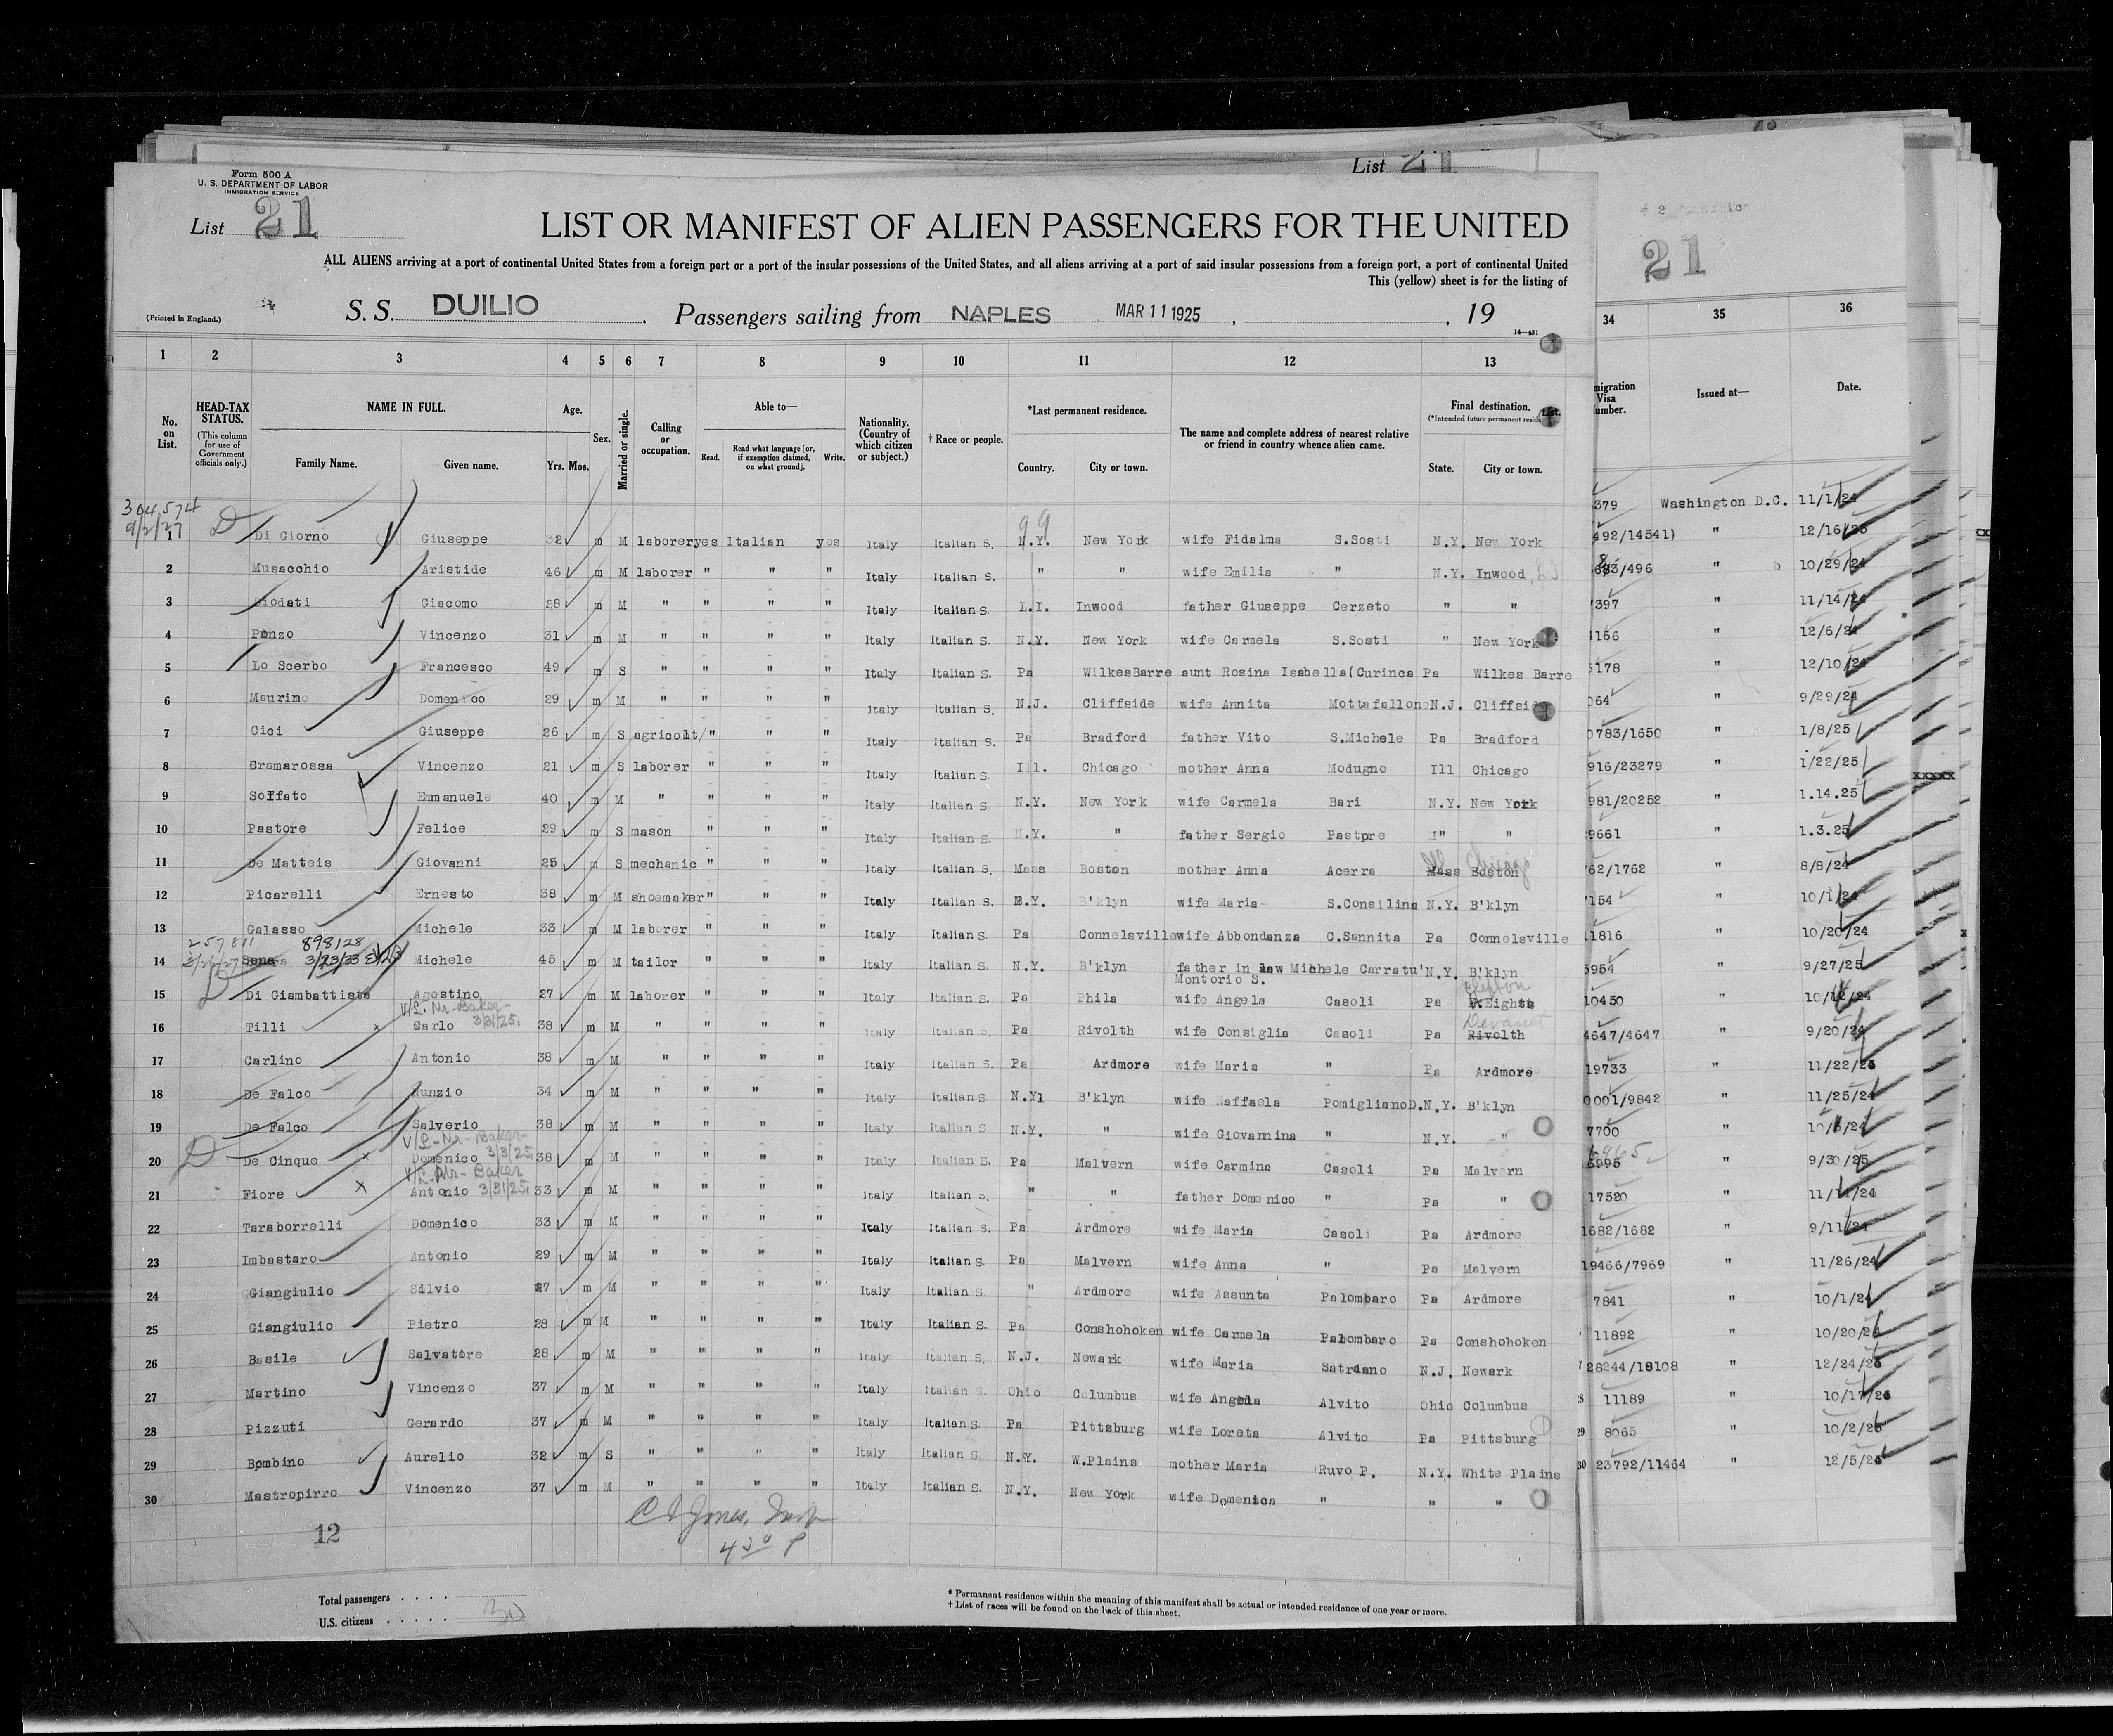 List 21
Form 500 A
U. S. DEPARTMENT OF LABOR
IMMIGRATION SERVICE
List 21
LIST OR MANIFEST OF ALIEN PASSENGERS FOR THE UNITED
21
ALL ALIENS arriving at a port of continental United States from a foreign port or a port of the insular possessions of the United States, and all aliens arriving at a port of said insular possessions from a foreign port, a port of continental United
This (yellow) sheet is for the listing of
(Printed in England.) S. S. DUILIO Passengers sailing from NAPLES MAR 11 1925 , , 19
14—431
1 2 3 4 5 6 7 8 9 10 11 12 13 34 35 36
No. on List. HEAD-TAX STATUS. (This column for use of Government officials only.) NAME IN FULL. Family Name. Given name. Age. Yrs. Mos. Sex. Married or single. Calling or occupation. Able to— Read. Read what language [or, if exemption claimed, on what ground]. Write. Nationality. (Country of which citizen or subject.) † Race or people. *Last permanent residence. Country. City or town. The name and complete address of nearest relative or friend in country whence alien came. Final destination. (*Intended future permanent resid State. City or town. migration Visa umber. Issued at— Date.
304,574 379 Washington D.C. 11/1/24
9/2/37
1 D Di Giorno Giuseppe 32 m M laborer yes Italian yes Italy Italian S. 99 N.Y. New York wife Fidalma S.Sosti N.Y. New York 492/14541) " 12/16/25
2 Musacchio Aristide 46 m M laborer " " " Italy Italian S. " " wife Emilia " N.Y. Inwood 683/496 " 10/29/24
3 Diodati Giacomo 28 m M " " " " Italy Italian S. L.I. Inwood father Giuseppe Cerzeto " " 7397 " 11/14/24
4 Ponzo Vincenzo 31 m M " " " " Italy Italian S. N.Y. New York wife Carmela S.Sosti " New York 1166 " 12/6/24
5 Lo Scerbo Francesco 49 m S " " " " Italy Italian S. Pa WilkesBarre aunt Rosina Isabella(Curinca Pa Wilkes Barre 5178 " 12/10/24
6 Maurino Domenico 29 m M " " " " Italy Italian S. N.J. Cliffside wife Annita Mottafallone N.J. Cliffsid 064 " 9/29/24
7 Cici Giuseppe 26 m S agricolt " " " Italy Italian S. Pa Bradford father Vito S.Michele Pa Bradford 0783/1650 " 1/8/25
8 Gramarossa Vincenzo 21 m S laborer " " " Italy Italian S. Ill. Chicago mother Anna Modugno Ill Chicago 916/23279 " 1/22/25
9 Solfato Emmanuele 40 m M " " " " Italy Italian S. N.Y. New York wife Carmela Bari N.Y. New York 981/20252 " 1.14.25
10 Pastore Felice 29 m S mason " " " Italy Italian S. N.Y. " father Sergio Pastpre " " 9661 " 1.3.25
11 De Matteis Giovanni 25 m S mechanic " " " Italy Italian S. Mass Boston mother Anna Acerra Ill Chicago Mass Boston 762/1762 " 8/8/24
12 Picarelli Ernesto 38 m M shoemaker " " " Italy Italian S. N.Y. B'klyn wife Maria S.Consilina N.Y. B'klyn 7154 " 10/1/24
13 Galasso Michele 33 m M laborer " " " Italy Italian S. Pa Connelsville wife Abbondanza C.Sannita Pa Connelsville 11816 " 10/20/24
257811 898128
14 Sena 3/23/33 Michele 45 m M tailor " " " Italy Italian S. N.Y. B'klyn father in law Michele Carratu' N.Y. B'klyn 5954 " 9/27/25
Montorio S.
15 D Di Giambattista Agostino 27 m M laborer " " " Italy Italian S. Pa Phila wife Angela Casoli Pa Clefton P.Eights 10450 " 10/12/24
V/L. Nr-Baker- 3/3/25,
16 Tilli x Carlo 38 m M " " " " Italy Italian S. Pa Rivolth wife Consiglia Casoli Pa Devault Rivolth 4647/4647 " 9/20/24
17 Carlino Antonio 38 m M " " " " Italy Italian S. Pa Ardmore wife Maria " Pa Ardmore 19733 " 11/22/25
18 De Falco Nunzio 34 m M " " " " Italy Italian S. N.Y1 B'klyn wife Raffaela PomiglianoD. N.Y. B'klyn 0001/9842 " 11/25/24
19 De Falco Salverio 38 m M " " " " Italy Italian S. N.Y. " wife Giovannina " N.Y. " 7700 " 10/5/24
V/L-Nr-Baker- 3/3/25, 6965
20 D De Cinque x Domenico 38 m M " " " " Italy Italian S. Pa Malvern wife Carmina Casoli Pa Malvern 6995 " 9/30/25
V/L-Nr-Baker 3/31/25,
21 Fiore x Antonio 33 m M " " " " Italy Italian S. " " father Domenico " Pa " 17520 " 11/14/24
22 Taraborrelli Domenico 33 m M " " " " Italy Italian S. Pa Ardmore wife Maria Casoli Pa Ardmore 1682/1682 " 9/11/24
23 Imbastaro Antonio 29 m M " " " " Italy Italian S. Pa Malvern wife Anna " Pa Malvern 19466/7969 " 11/26/24
24 Giangiulio Silvio 27 m M " " " " Italy Italian S. " Ardmore wife Assunta Palombaro Pa Ardmore 7841 " 10/1/24
25 Giangiulio Pietro 28 m M " " " " Italy Italian S. Pa Conshohoken wife Carmela Palombaro Pa Conshohoken 11892 " 10/20/24
26 Basile Salvatore 28 m M " " " " Italy Italian S. N.J. Newark wife Maria Satriano N.J. Newark 28244/18108 " 12/24/25
27 Martino Vincenzo 37 m M " " " " Italy Italian S. Ohio Columbus wife Angela Alvito Ohio Columbus 8 11189 " 10/17/25
28 Pizzuti Gerardo 37 m M " " " " Italy Italian S. Pa Pittsburg wife Loreta Alvito Pa Pittsburg 29 8065 " 10/2/25
29 Bombino Aurelio 32 m S " " " " Italy Italian S. N.Y. W.Plains mother Maria Ruvo P. N.Y. White Plains 30 23792/11464 " 12/5/25
30 Mastropirro Vincenzo 37 m M " " " " Italy Italian S. N.Y. New York wife Domenica " " "
12
Jones, Insp
4 30 P
Total passengers . . . .
U.S. citizens . . . . . 30
* Permanent residence within the meaning of this manifest shall be actual or intended residence of one year or more.
† List of races will be found on the back of this sheet.